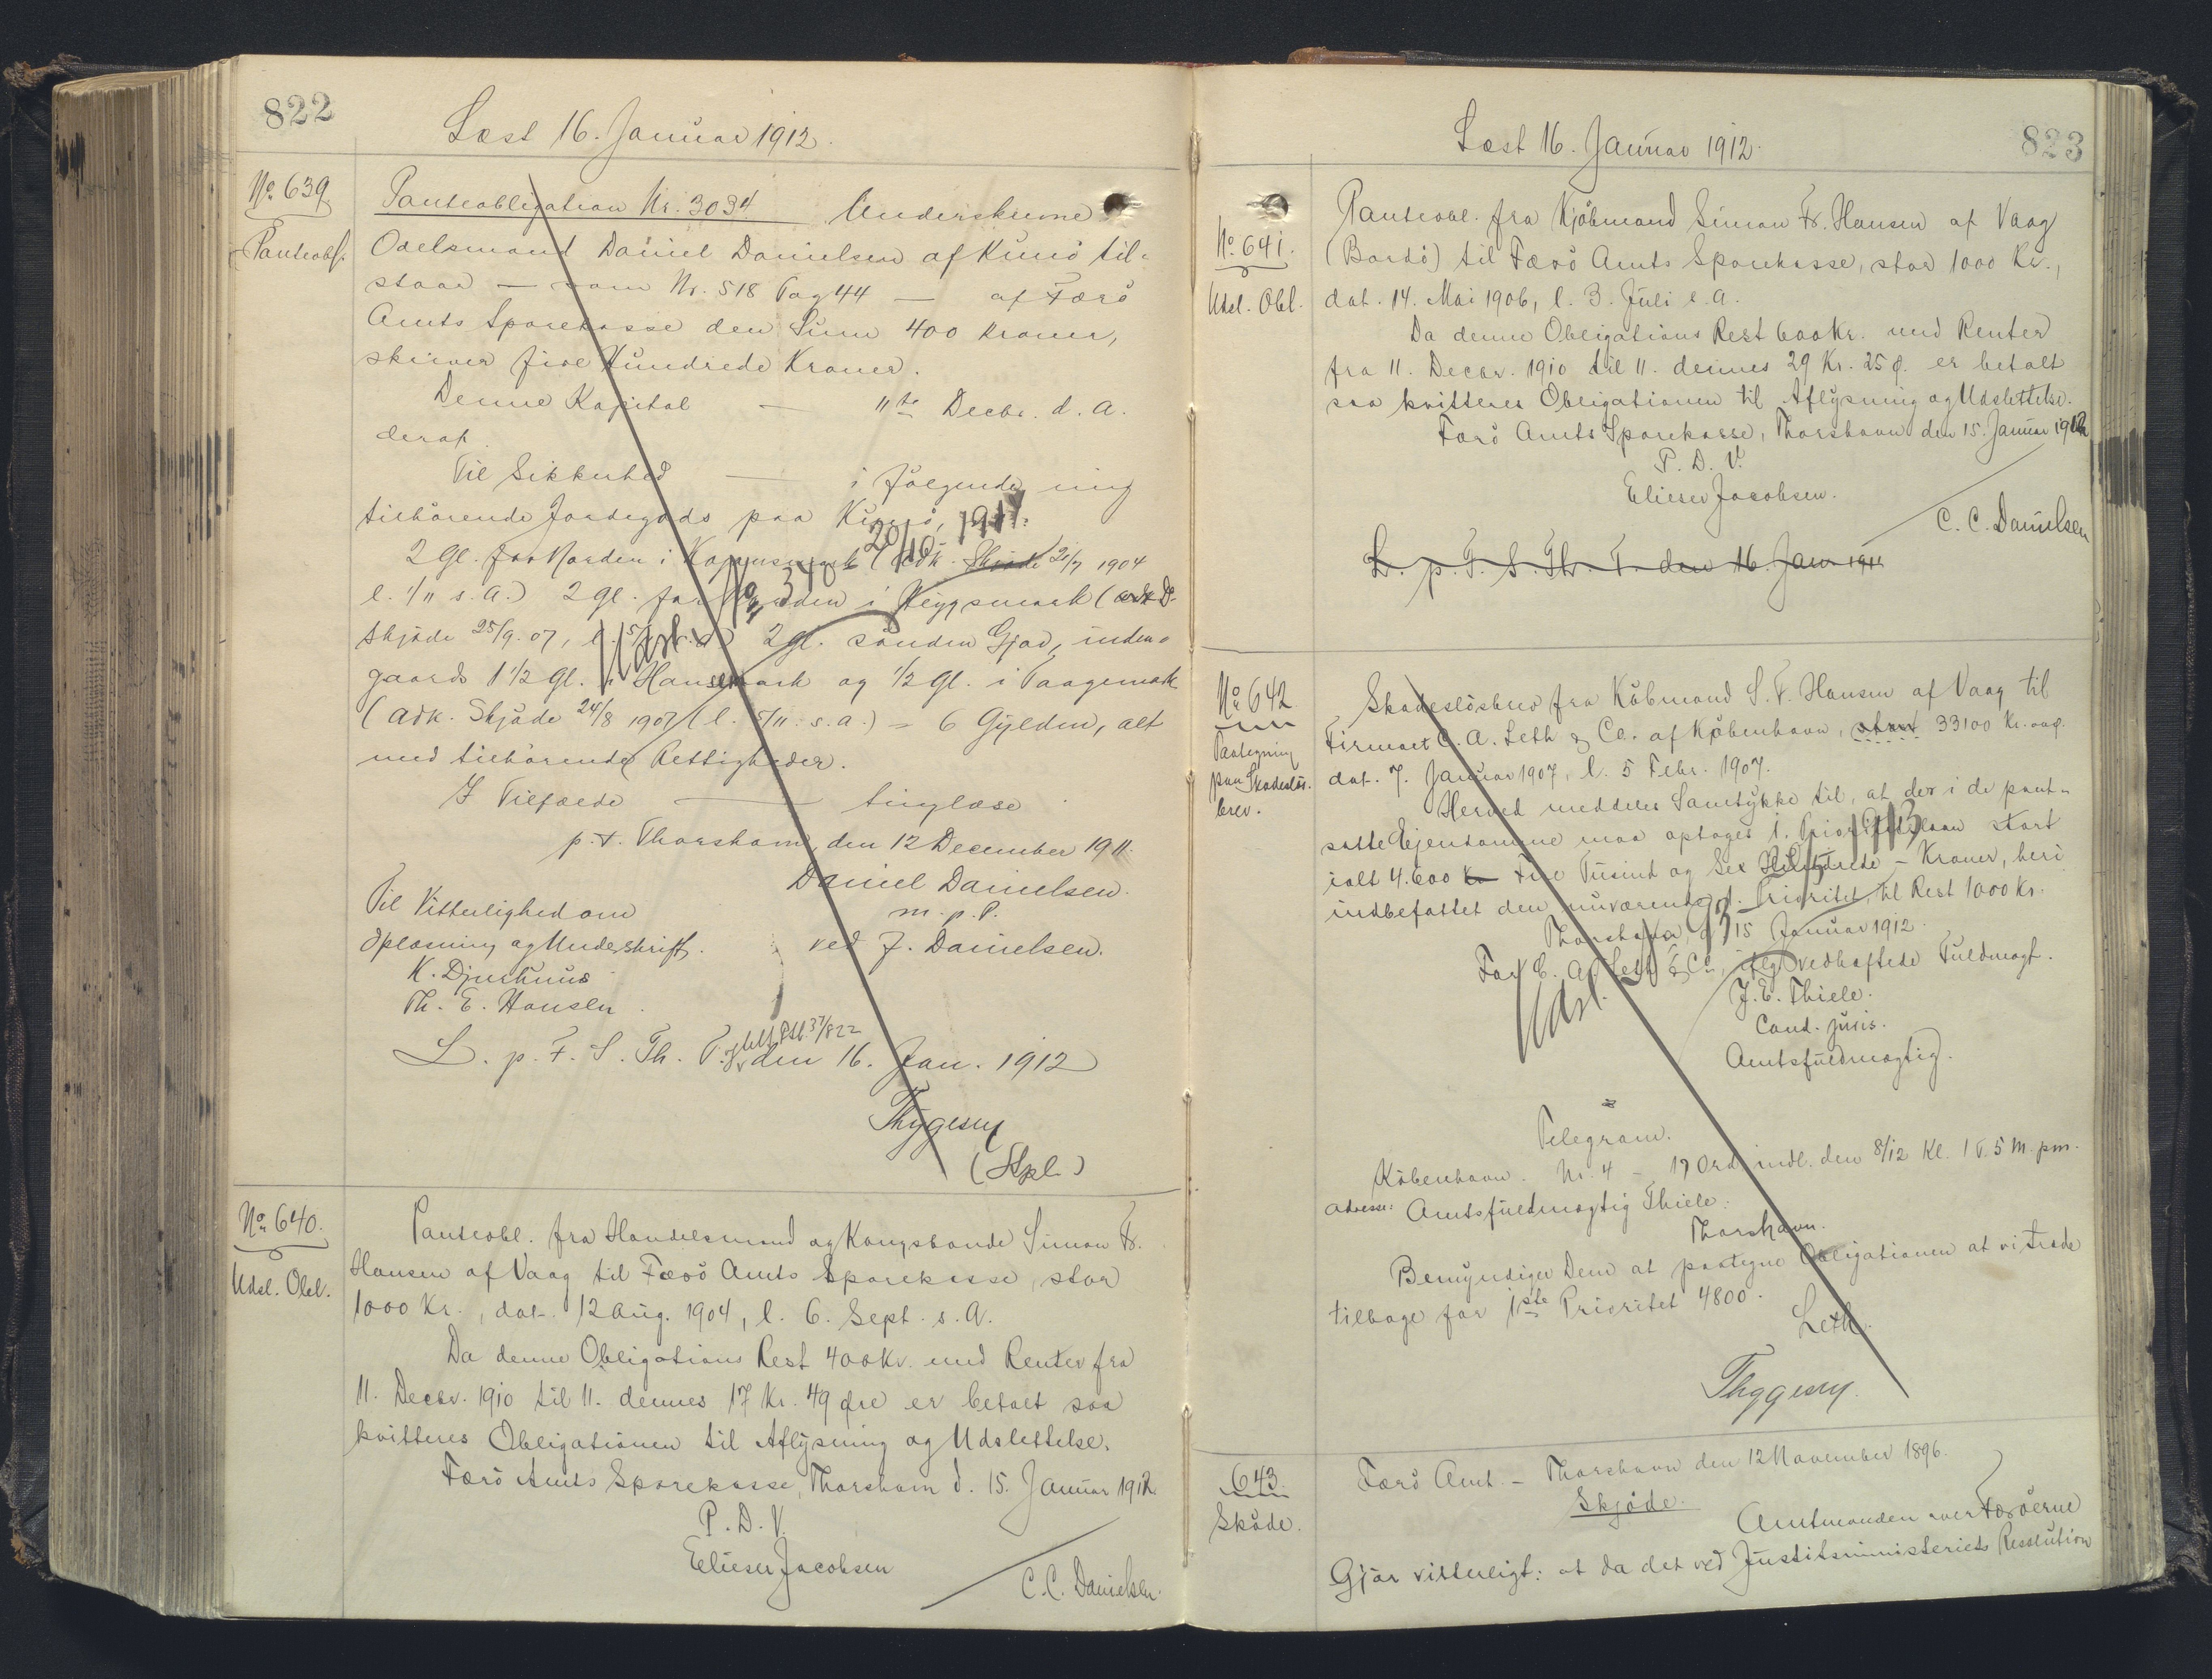 822
Læst 16. Januar 1912.
No. 639
Panteobl.
Panteobligation Nr. 3034 Underskrevne
Odelsmand Daniel Danielsen af Kunö til-
staar — som Nr. 518 Pag 44 — af Færö
Amts Sparekasse den Sum 400 Kroner,
skriver fire Hundrede Kroner.
Denne Kapital — 11te Decbr. d. A.
deraf.
Til Sikkerhed — i fölgende mig
tilhörende Jordegods paa Kunö,
2 Gl. for Norden i (adk. Skjöde 20/7 1904
l. 1/11 s. A.) 2 gl. for Norden i (adk.
Skjöde 25/9. 07, l. 2 gl. sönden Gjov, inden-
gaards 1 1/2 Gl. i og 1/2 Gl. i
(Adk. Skjöde 24/8 1907 l. 5/11 s. a.) = 6 Gylden, alt
med tilhörende Rettigheder.
I Tilfælde — tinglæse.
p. t. Thorshavn, den 12 December 1911.
Daniel Danielsen.
m. p. P.
ved J. Danielsen.
Til Vitterlighed om
Oplæsning og Underskrift.
K. Djurhuus
Th. E. Hansen
L. p. F. S. Th. T. den 16. Jan. 1912
Thygesen
(Stpl.)
No. 640.
Udsl. Obl.
Panteobl. fra Handelsmand og Kongsbonde Simon Fr.
Hansen af Vaag til Færö Amts Sparekasse, stor
1000 Kr., dat. 12 Aug. 1904, l. 6. Sept. s. A.
Da denne Obligations Rest 400 Kr. med Renter fra
11. Decbr. 1910 til 11. dennes 17 Kr. 49 Øre er betalt saa
kvitteres Obligationen til Aflysning og Udslettelse.
Færö Amts Sparekasse, Thorshavn d. 15. Januar 1912
P. D. V.
Elieser Jacobsen
C. C. Danielsen.
823
Læst 16. Januar 1912.
No. 641.
Udsl. Obl.
Panteobl. fra Kjöbmand Simon Fr. Hansen af Vaag
(Bordö) til Færö Amts Sparekasse, stor 1000 Kr.,
dat. 14. Mai 1906, l. 3. Juli s. A.
Da denne Obligations Rest 600 Kr. med Renter
fra 11. Decbr. 1910 til 11. dennes 29 Kr. 25 Ø. er betalt
saa kvitteres Obligationen til Aflysning og Udslettelse.
Færö Amts Sparekasse, Thorshavn den 15. Januar 1912
P. D. V.
Elieser Jacobsen.
C. C. Danielsen
L. p. F. S. Th. T. den 16. Jan. 1911
No 642
Paategning
paa Skadeslös-
brev.
Skadeslösbrev fra Köbmand S. F. Hansen af Vaag til
Firmaet C. A. Leth & Co. af Köbenhavn, stort 33100 Kr.
dat. 7. Januar 1907, l. 5 Febr. 1907.
Herved meddeles Samtykke til, at der i de pant-
satte Ejendomme maa optages 1. Prioritetslaan stort
ialt 4.600 Kr Fire Tusind og Sex Hundrede – Kroner, heri
indbefattet den nuværende 1. Prioritet, til Rest 1000 Kr.
Thorshavn, d. 15 Januar 1912.
For C. A. Leth & Co, iflg. vedhæftede Fuldmagt.
J. E. Thiele.
Cand. juris.
Amtsfuldmægtig.
Telegram.
Köbenhavn. Nr. 4 – 17 Ord indl. den 8/12 Kl. 1 T. 5 M. pm.
Adresse: Amtsfuldmægtig Thiele.
Thorshavn.
Bemyndiger Dem at paategne Obligationen at vi træde
tilbage for 1ste Prioritet 4800.
Leth.
Thygesen.
643.
Sköde.
Færö Amt. – Thorshavn den 12 November 1896.
Skjöde.
Amtmanden over Færöerne
Gjör vitterligt: at da det ved Justitsministeriets Resolution